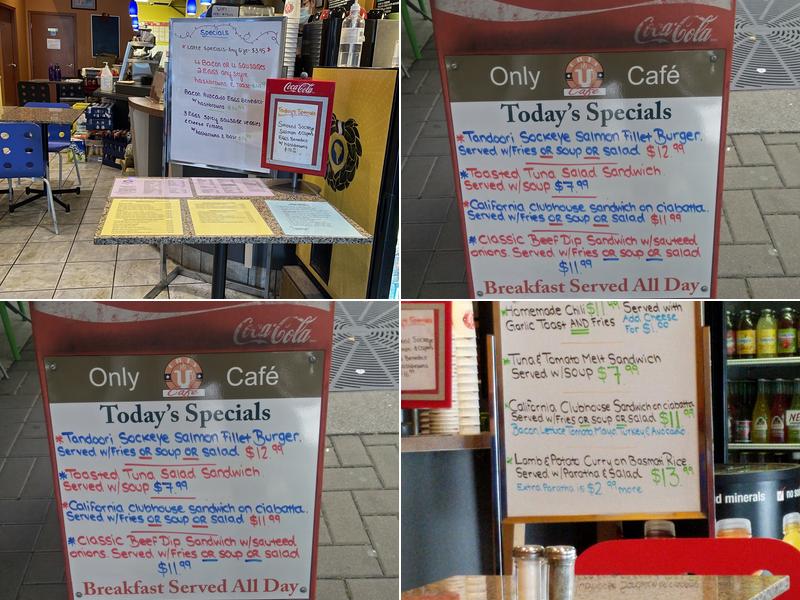 Specials
Latte Specials-Any Size-$3.95
4 Bacon or 4 Sausages
2 Eggs any style
hashbrowns & Toast
Bacon Avocado Eggs Benedict
w/hashbrowns
3 Eggs Spicy Sausage veggies
& Cheese Frittata
w/hashbrowns & toast
Coca-Cola
Today's Specials
Smoked Sockeye
Salmon & Capers
Eggs Benedict
w/hashbrowns
Coca-Cola
Only U Café
Today's Specials
*Tandoori Sockeye Salmon Fillet Burger.
Served w/Fries OR soup OR salad $12.99
*Toasted Tuna Salad Sandwich
Served w/soup $7.99
*California clubhouse sandwich on ciabatta.
Served w/Fries OR soup OR salad $11.99
*Classic Beef Dip Sandwich w/sauteed
onions. Served w/Fries OR soup OR salad
$11.99
Breakfast Served All Day
Coca-Cola
Only U Café
Today's Specials
*Tandoori Sockeye Salmon Fillet Burger.
Served w/Fries OR soup OR salad $12.99
*Toasted Tuna Salad Sandwich
Served w/soup $7.99
*California clubhouse sandwich on ciabatta.
Served w/Fries OR soup OR salad $11.99
*Classic Beef Dip Sandwich w/sauteed
onions. Served w/Fries OR soup OR salad
$11.99
Breakfast Served All Day
Homemade Chili $11.99 Served with
Garlic Toast AND Fries Add Cheese
For $1.00
*Tuna & Tomato Melt Sandwich
Served w/Soup $7.99
*California Clubhouse Sandwich on ciabatta
Served w/Fries OR Soup OR Salad $11.99
Bacon, Lettuce, Tomato, Mayo, Turkey & Avocado
*Lamb & Potato Curry on Basmati Rice
Served w/Paratha & Salad $13.99
Extra Paratha is $2.99 more
d minerals
no so